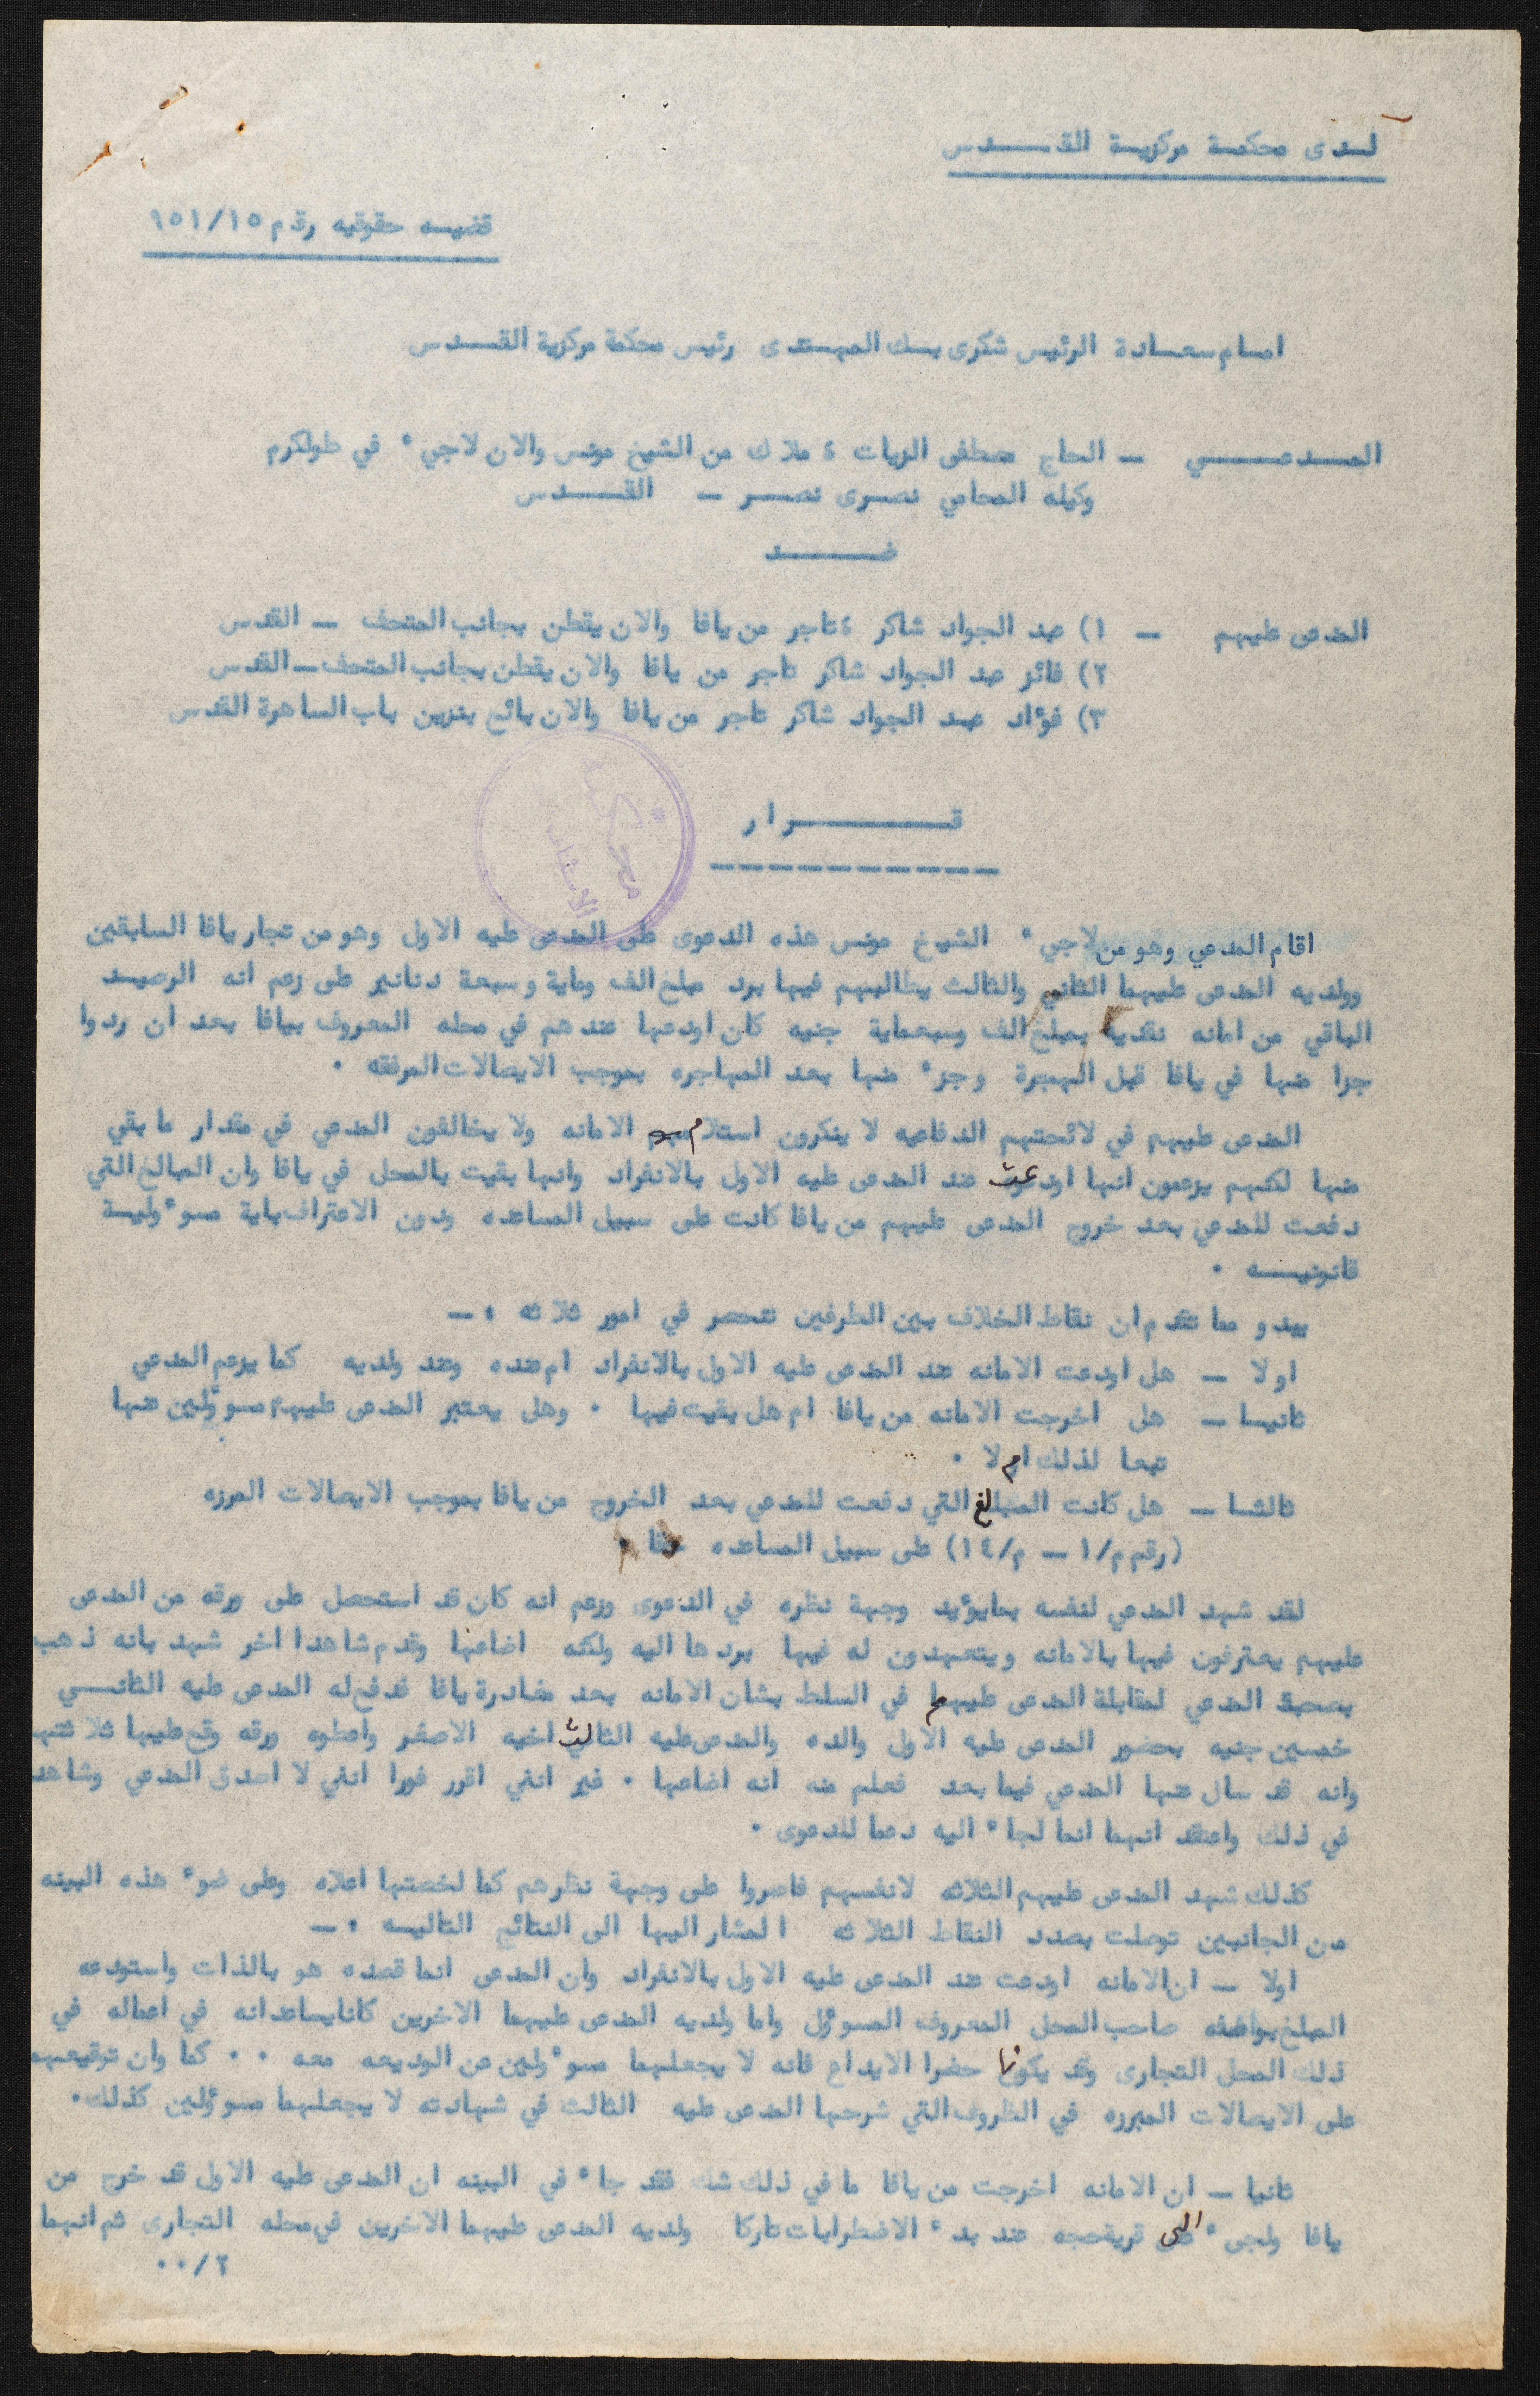 لدى محكمة مركزية القدس
قضيه حقوقيه رقم ٩٥١/١٥
امام سعادة الرئيس شكرى بك المهتدى رئيس محكمة مركزية القدس
المدعي — الحاج مصطفى الزيات ، ملاك من الشيخ مونس والان لاجيء في طولكرم
وكيله المحامي نصرى نصر — القدس
ضد
المدعى عليهم — ١) عبد الجواد شاكر ، تاجر من يافا والان يقطن بجانب المتحف — القدس
٢) فائز عبد الجواد شاكر تاجر من يافا والان يقطن بجانب المتحف — القدس
٣) فؤاد عبد الجواد شاكر تاجر من يافا والان بائع بنزين باب الساهرة القدس
قرار
اقام المدعي وهو من لاجيء الشيخ مونس هذه الدعوى على المدعى عليه الاول وهو من تجار يافا السابقين
وولديه المدعى عليهما الثاني والثالث يطالبهم فيها برد مبلغ الف وماية وسبعة دنانير على زعم انه الرصيد
الباقي من امانه نقدية بمبلغ الف وسبعماية جنيه كان اودعها عندهم في محله المعروف بيافا بعد ان ردوا
جزا منها في يافا قبل الهجرة وجزء منها بعد المهاجره بموجب الايصالات المرفقه .
المدعى عليهم في لائحتهم الدفاعيه لا ينكرون استلامهم الامانه ولا يخالفون المدعي في مقدار ما بقي
منها لكنهم يزعمون انها اودعت عند المدعى عليه الاول بالانفراد وانها بقيت بالمحل في يافا وان المبالغ التي
دفعت للمدعي بعد خروج المدعى عليهم من يافا كانت على سبيل المساعده ودون الاعتراف باية مسوءولية
قانونيه .
يبدو مما تقدم ان نقاط الخلاف بين الطرفين تنحصر في امور ثلاثه :—
اولا — هل اودعت الامانه عند المدعى عليه الاول بالانفراد ام عنده وعند ولديه كما يزعم المدعي
ثانيا — هل اخرجت الامانه من يافا ام هل بقيت فيها . وهل يعتبر المدعى عليهم مسوءولين عنها
تبعا لذلك ام لا .
ثالثا — هل كانت المبالغ التي دفعت للمدعي بعد الخروج من يافا بموجب الايصالات المبرزه
(رقم م/١ — م/١٤) على سبيل المساعده
لقد شهد المدعي لنفسه بما يؤيد وجهة نظره في الدعوى وزعم انه كان قد استحصل على ورقه من المدعى
عليهم يعترفون فيها بالامانه ويتعهدون له فيها بردها اليه ولكنه اضاعها وقدم شاهدا اخر شهد بانه ذهب
بصحبة المدعي لمقابلة المدعى عليهم في السلط بشان الامانه بعد مغادرة يافا فدفع له المدعى عليه الثاني
خمسين جنيه بحضور المدعى عليه الاول والده والمدعى عليه الثالث اخيه الاصغر واعطوه ورقه وقع عليها ثلاثتهم
وانه قد سال عنها المدعي فيما بعد فعلم منه انه اضاعها . غير انني اقرر فورا انني لا اصدق المدعي وشاهده
في ذلك واعتقد انهما انما لجاء اليه دعما للدعوى .
كذلك شهد المدعى عليهم الثلاثه لانفسهم فاصروا على وجهة نظرهم كما لخصتها اعلاه وعلى ضوء هذه البينه
من الجانبين توصلت بصدد النقاط الثلاثه المشار اليها الى النتائج التاليه :—
اولا — ان الامانه اودعت عند المدعى عليه الاول بالانفراد وان المدعى انما قصده هو بالذات واستودعه
المبلغ بواصفه صاحب المحل المعروف المسوءول واما ولديه المدعى عليهما الاخرين كانا يساعدانه في اعماله في
ذلك المحل التجارى وقد يكونا حضرا الايداع فانه لا يجعلهما مسوءولين عن الوديعه معه .. كما وان توقيعهما
على الايصالات المبرزه في الظروف التي شرحها المدعى عليه الثالث في شهادته لا يجعلهما مسوءولين كذلك .
ثانيا — ان الامانه اخرجت من يافا ما في ذلك شك فقد جاء في البينه ان المدعى عليه الاول قد خرج من
يافا ولجىء الى قرية حجه عند بدء الاضطرابات تاركا ولديه المدعى عليهما الاخرين في محله التجارى ثم انهما
٠٠/٢